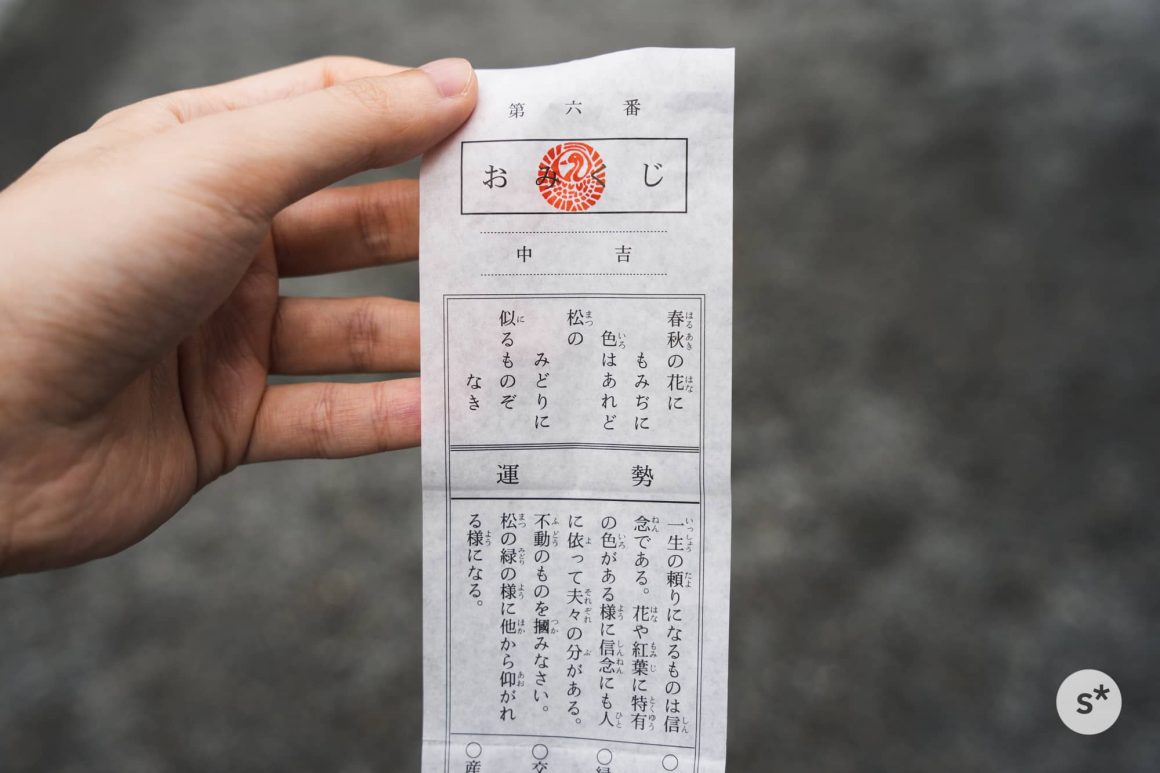 第六番
おみくじ
中吉
春秋の花に
もみぢに
色はあれど
松の
みどりに
似るものぞ
なき
運勢
一生の頼りになるものは信
念である。花や紅葉に特有
の色がある様に信念にも人
に依って夫々の分がある。
不動のものを摑みなさい。
松の緑の様に他から仰がれ
る様になる。
○
○縁
○交
○産
s*